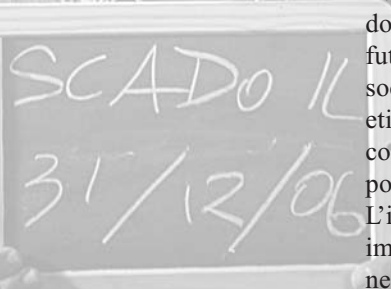 SCADO IL
31/12/06
do
fut
soc
eti
co
po
L'i
im
ne